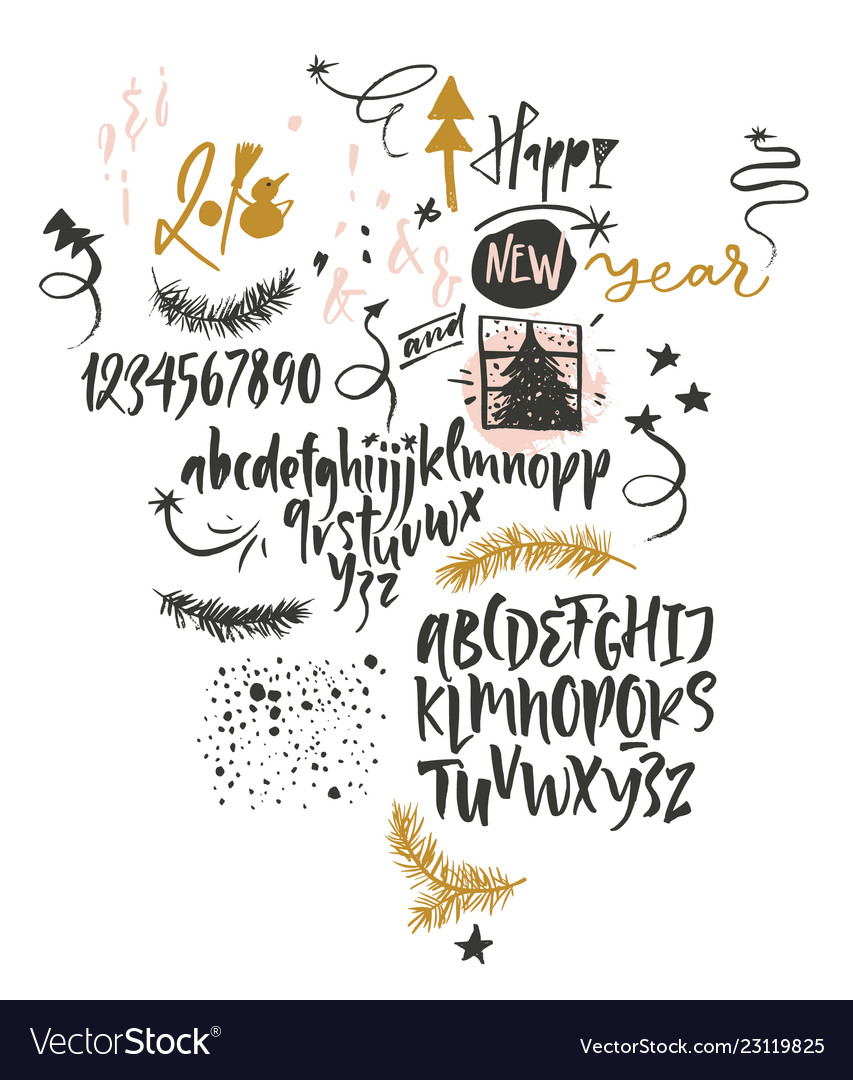 ?&¡
¡
2018
Happy
!
&&&
NEW year
and
1234567890
abcdefghiijjklmnopp
qrstuvwx
yzz
ABCDEFGHIJ
KLMNOPQRS
TUVWXYZZ
VectorStock®
VectorStock.com/23119825